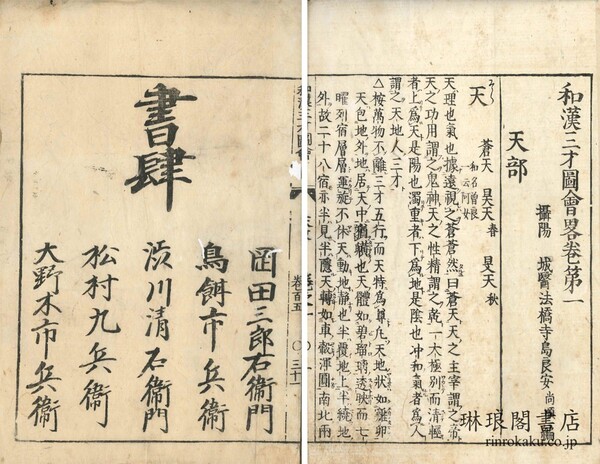 和漢三才圖會畧卷第一
攝陽 城醫法橋寺島良安尚順編
天部
天 蒼天 昊天春 旻天秋
和名曾良
一云阿女
天理也氣也據遠視之蒼蒼然曰蒼天天之主宰謂之帝
天之功用謂之鬼神天之性精謂之乾一太極別而清輕
者上爲天是陽也濁重者下爲地是陰也冲和氣者爲人
謂之天地人三才
△按萬物不離三才五行而天特爲尊凡天地狀如雞卵
天包地外地居天中猶黃也天體如碧瑠璃透映而七
曜列宿層層運旋不休天動地靜也半覆地上半繞地
外故二十八宿亦半見半隱天轉如車轂渾圓南北兩
和漢三才圖會
卷百五
〇 三十一
書肆
岡田三郎右衞門
鳥飼市兵衞
渋川清右衞門
松村九兵衞
大野木市兵衞
琳琅閣書店
rinrokaku.co.jp